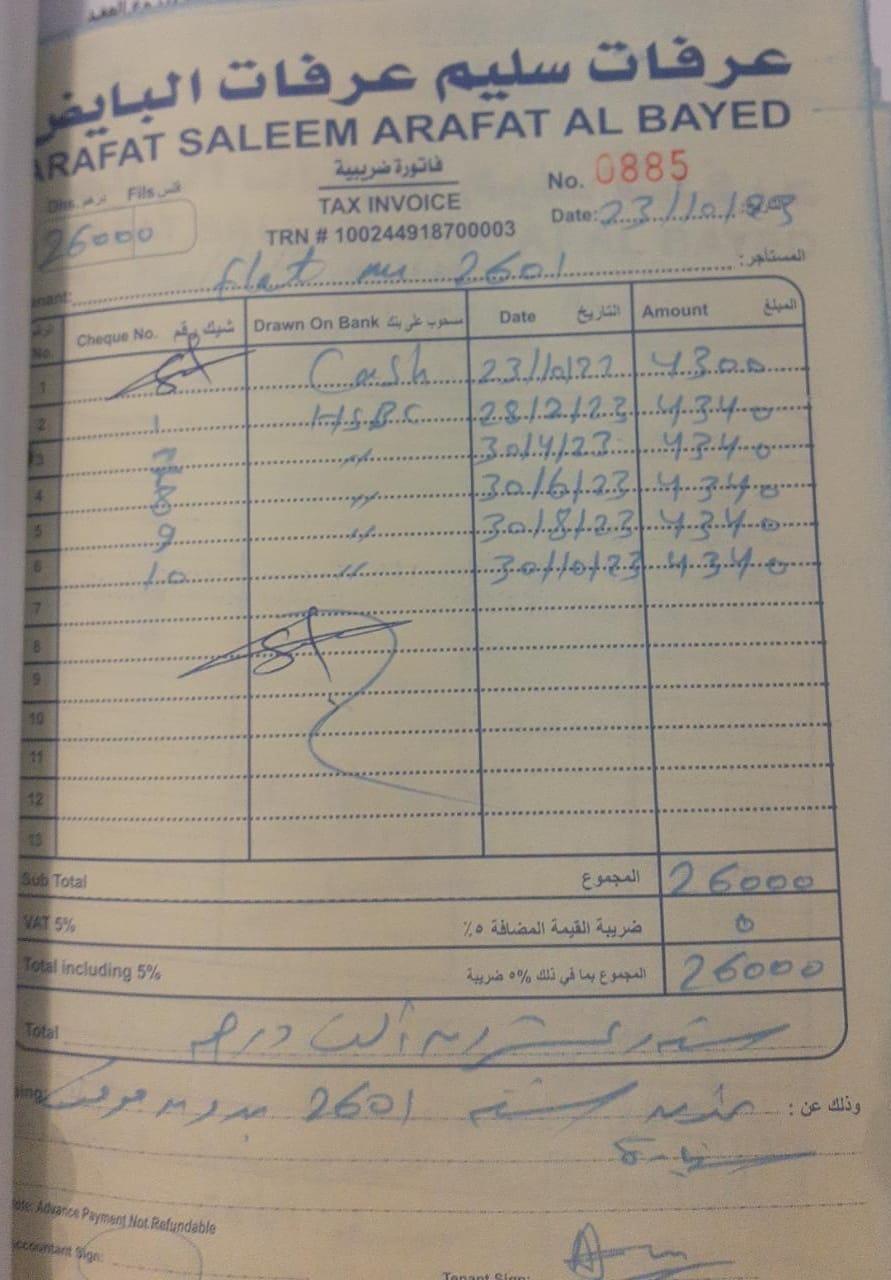 عرفات سليم عرفات البايض
ARAFAT SALEEM ARAFAT AL BAYED
فاتورة ضريبية
TAX INVOICE
TRN # 100244918700003
No. 0885
Date: 23/10/
Dhs. درهم Fils فلس
26000
flat no 2601 المستأجر:
No. Cheque No. شيك رقم Drawn On Bank مسحوب على بنك Date التاريخ Amount المبلغ
1 Cash 23/10/22 4300
2 1 HSBC 28/2/23 4340
3 7 " 30/4/23 4340
4 8 " 30/6/23 4340
5 9 " 30/8/23 4340
6 10 " 30/10/23 4340
7
8
9
10
11
12
13
Sub Total المجموع 26000
VAT 5% ضريبة القيمة المضافة ٥٪ 0
Total including 5% المجموع بما في ذلك 5% ضريبة 26000
Total ستة وعشرون ألف درهم
وذلك عن: سنة 2601 بدون موقف
Note: Advance Payment Not Refundable
Accountant Sign:
Tenant Sign: